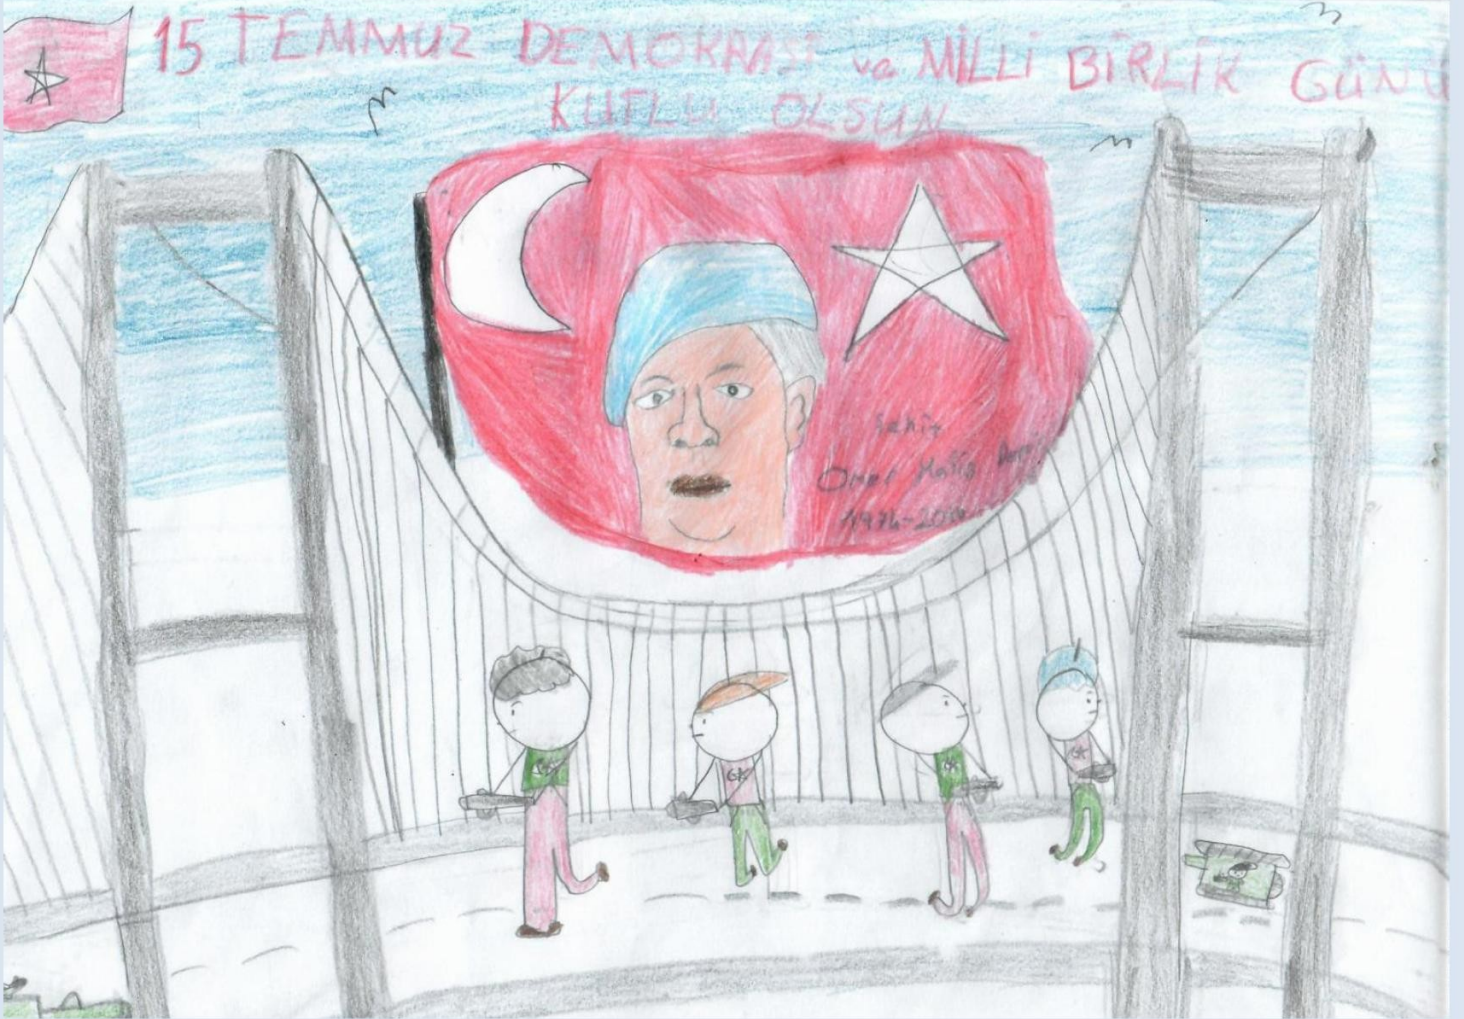 15 TEMMUZ DEMOKRASİ ve MİLLİ BİRLİK GÜNÜ
KUTLU OLSUN
Şehit
Omer Halis
1974-2016